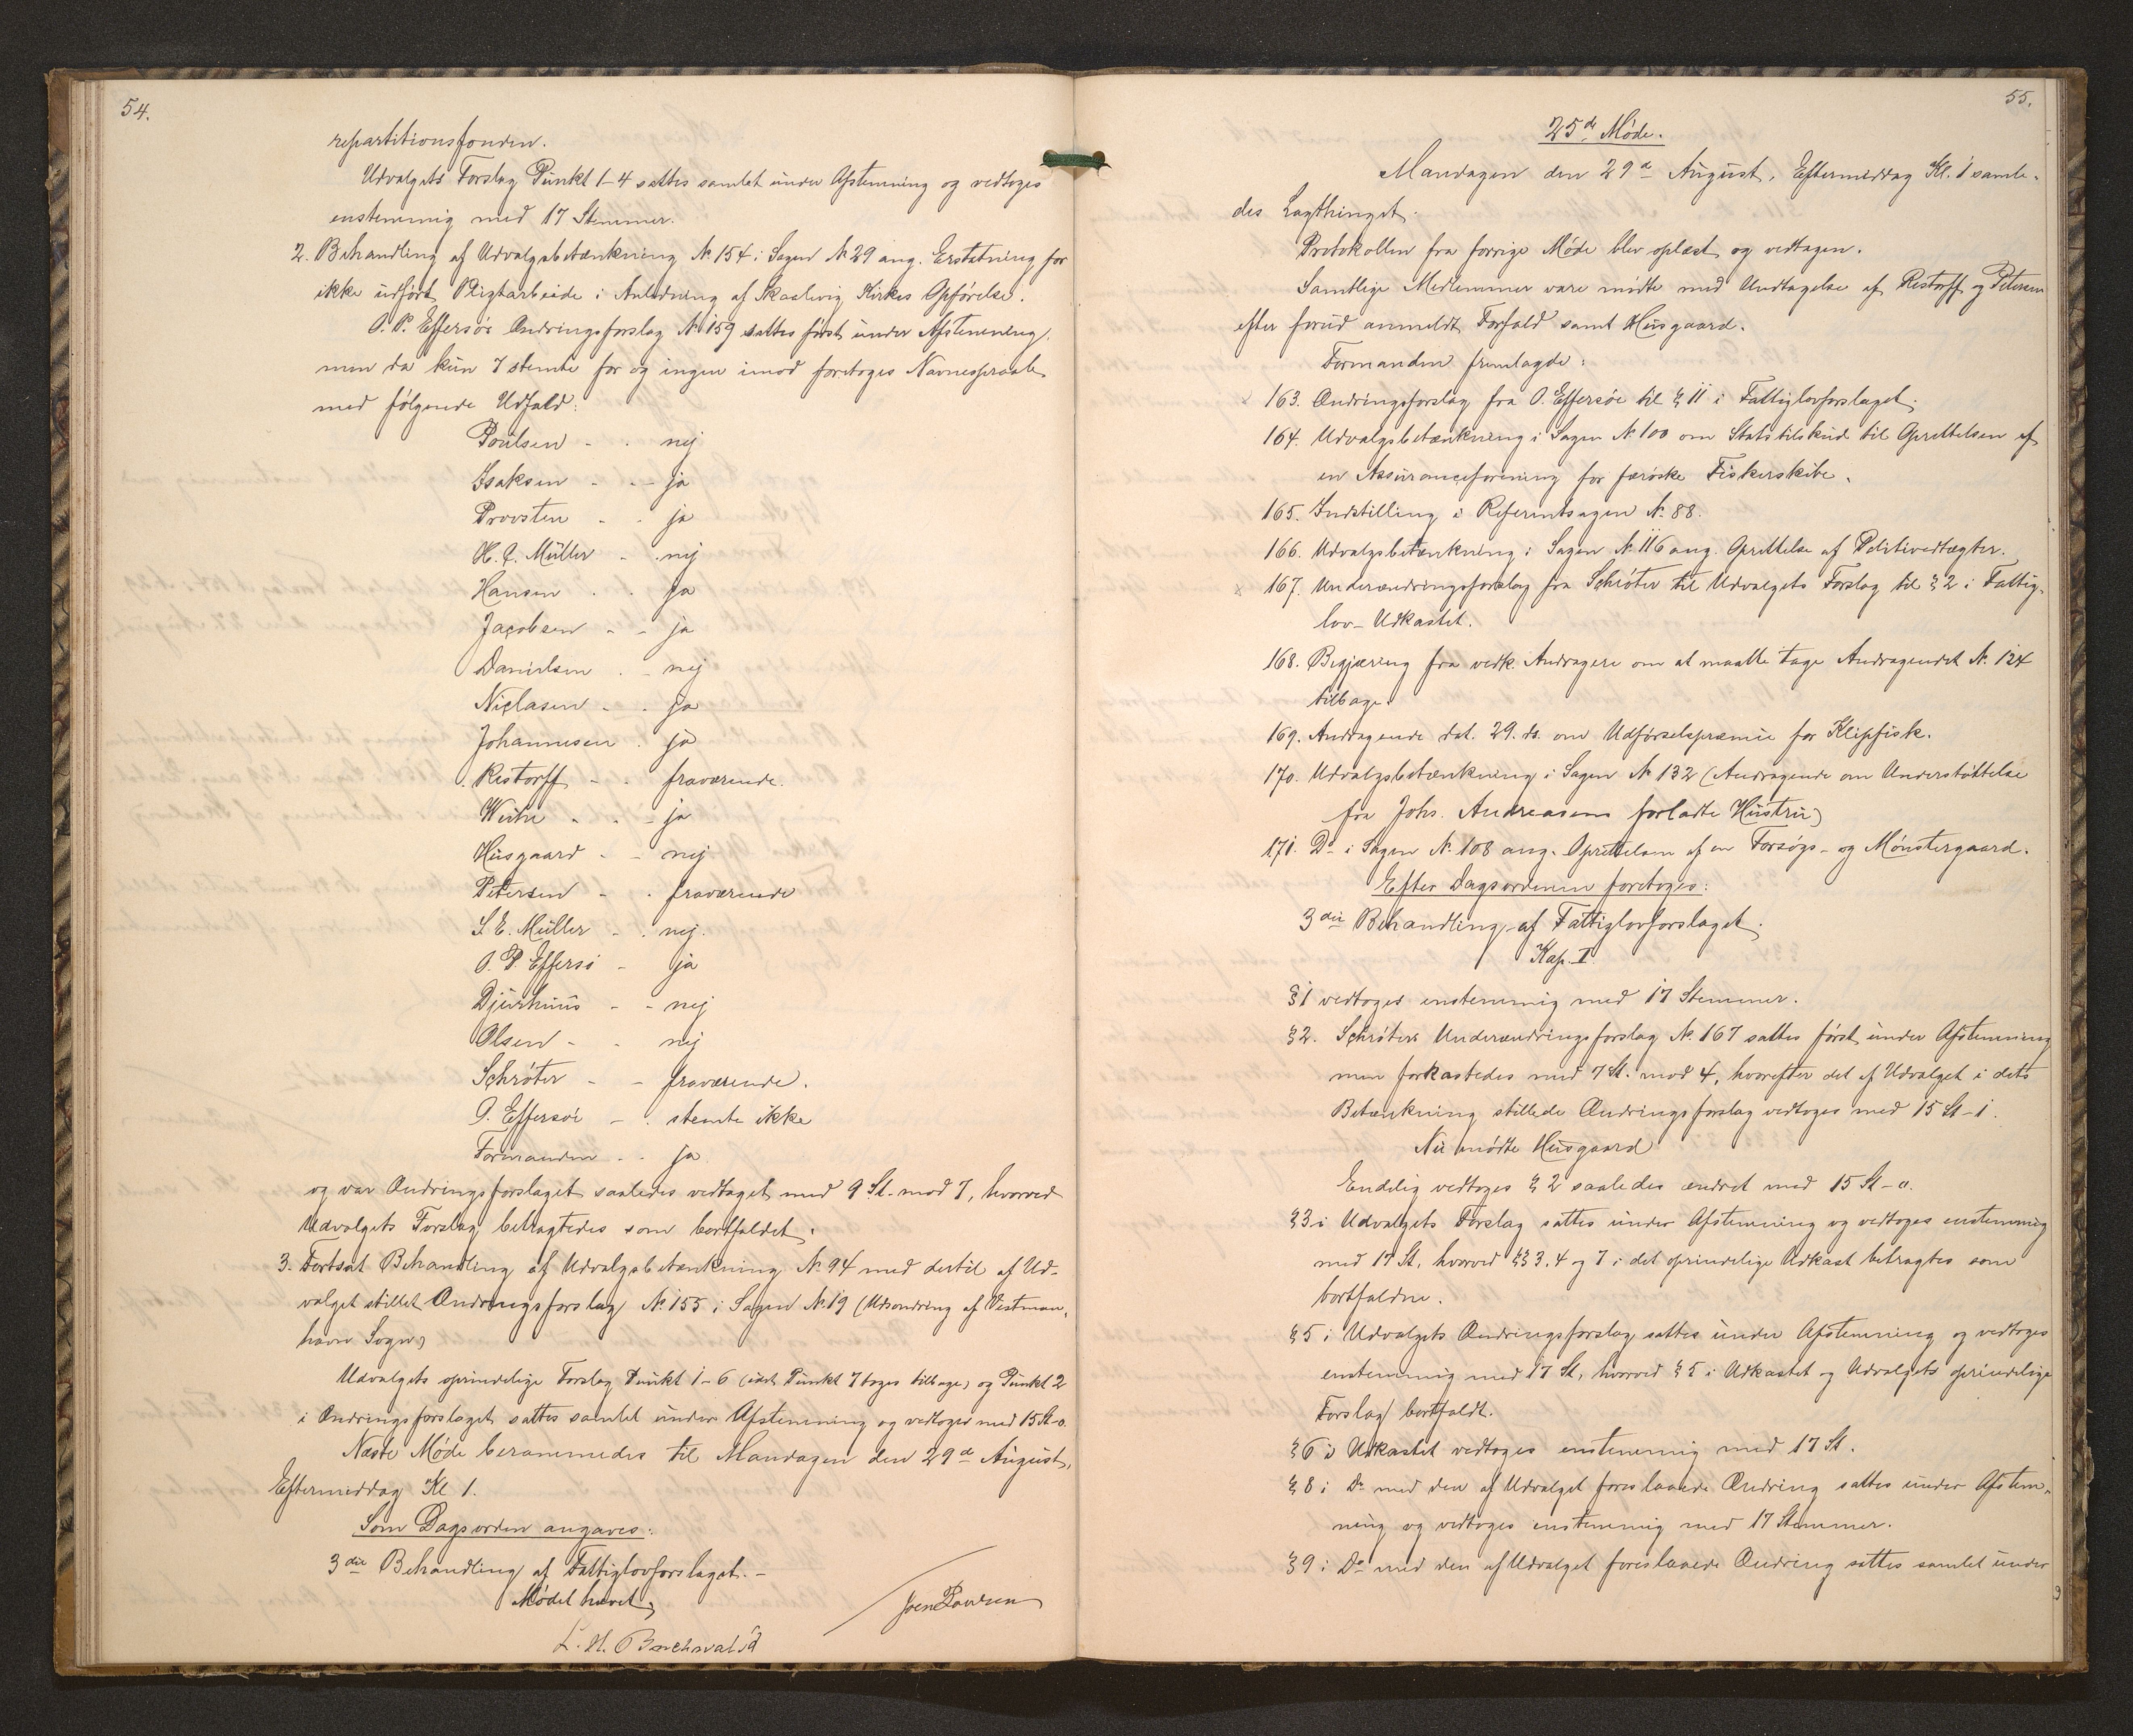 54.
repartitionsfonden.
Udvalgets Forslag Punkt 1-4 sattes samlet under Afstemning og vedtoges
enstemmig med 17 Stemmer.
2. Behandling af Udvalgsbetænkning No 154 i Sagen No 29 ang. Erstatning for
ikke udført Pligtarbeide i Anledning af Skaalevig Kirkes Opførelse.
O. P. Effersøs Ændringsforslag No 159 sattes først under Afstemning,
men da kun 7 stemte for og ingen imod foretoges Navneopraab
med følgende Udfald:
Poulsen - - nej
Isaksen - - ja
Provsten - - ja
H. C. Müller - - nej
Hansen - - ja
Jacobsen - - ja
Danielsen - - nej
Niclasen - - ja
Johannesen - ja
Restorff - - fraværende.
Weihe - - ja
Husgaard - - nej
Petersen - - fraværende
S. E. Müller - - nej.
O. P. Effersø - ja
Djurhuus - - nej
Olsen - - nej
Schrøter - - fraværende.
O. Effersøe - - stemte ikke
Formanden - - ja
og var Ændringsforslaget saaledes vedtaget med 9 St. mod 7, hvorved
Udvalgets Forslag betragtedes som bortfaldet.
3. Fortsat Behandling af Udvalgsbetænkning No 94 med dertil af Ud-
valget stillet Ændringsforslag No 155 i Sagen No 19 (Udsondring af Vestman-
havn Sogn)
Udvalgets oprindelige Forslag Punkt 1-6 (idet Punkt 7 toges tilbage) og Punkt 2
i Ændringsforslaget sattes samlet under Afstemning og vedtoges med 15 St-0.
Næste Møde berammedes til Mandagen den 29de August,
Eftermiddag Kl 1.
Som Dagsorden angaves:
3die Behandling af Fattiglovforslaget. -
Mødet hævet,
55.
25de Møde.
Mandagen den 29de August, Eftermiddag Kl. 1 samle-
des Lagthinget.
Protokollen fra forrige Møde blev oplæst og vedtagen.
Samtlige Medlemmer vare mødte med Undtagelse af Restorff og Petersen
efter forud anmeldt Forfald samt Husgaard.
Formanden fremlagde:
x 163. Ændringsforslag fra O. Effersøe til § 11 i Fattiglovforslaget.
164. Udvalgsbetænkning i Sagen No 100 om Statstilskud til Oprettelsen af
en Assuranceforening for færøske Fiskerskibe.
165. Indstilling i Referentsagen No 88.
166. Udvalgsbetænkning i Sagen No 116 ang. Oprettelse af Politivedtægter.
x 167. Underændringsforslag fra Schrøter til Udvalgets Forslag til § 2 i Fattig-
lov-Udkastet.
168. Begjæring fra vedk. Andragere om at maatte tage Andragendet No 124
tilbage.
169. Andragende dat. 29. ds. om Udførselspræmie for Klipfisk.
170. Udvalgsbetænkning i Sagen No 132 (Andragende om Understøttelse
fra Johs. Andreasens forladte Hustru)
171. Do i Sagen No 108 ang. Oprettelsen af en Forsøgs- og Mønstergaard.
Efter Dagsordenen foretoges:
3die Behandling af Fattiglovforslaget.
Kap. I.
§ 1 vedtoges enstemmig med 17 Stemmer.
§ 2. Schrøters Underændringsforslag No 167 sattes først under Afstemning
men forkastedes med 7 St. mod 4, hvorefter det af Udvalget i dets
Betænkning stillede Ændringsforslag vedtoges med 15 St-1.
Nu mødte Husgaard
Endelig vedtoges § 2 saaledes ændret med 15 St-0.
§ 3 i Udvalgets Forslag sattes under Afstemning og vedtoges enstemmig
med 17 St, hvorved §§ 3, 4 og 7 i det oprindelige Udkast betragtes som
bortfaldne.
§ 5 i Udvalgets Ændringsforslag sattes under Afstemning og vedtoges
enstemmig med 17 St, hvorved § 5 i Udkastet og Udvalgets oprindelige
Forslag bortfaldt.
§ 6 i Udkastet vedtoges enstemmig med 17 St.
§ 8 i Do med den af Udvalget foreslaaede Ændring sattes under Afstem-
ning og vedtoges enstemmig med 17 Stemmer.
§ 9 i Do med den af Udvalget foreslaaede Ændring sattes samlet under